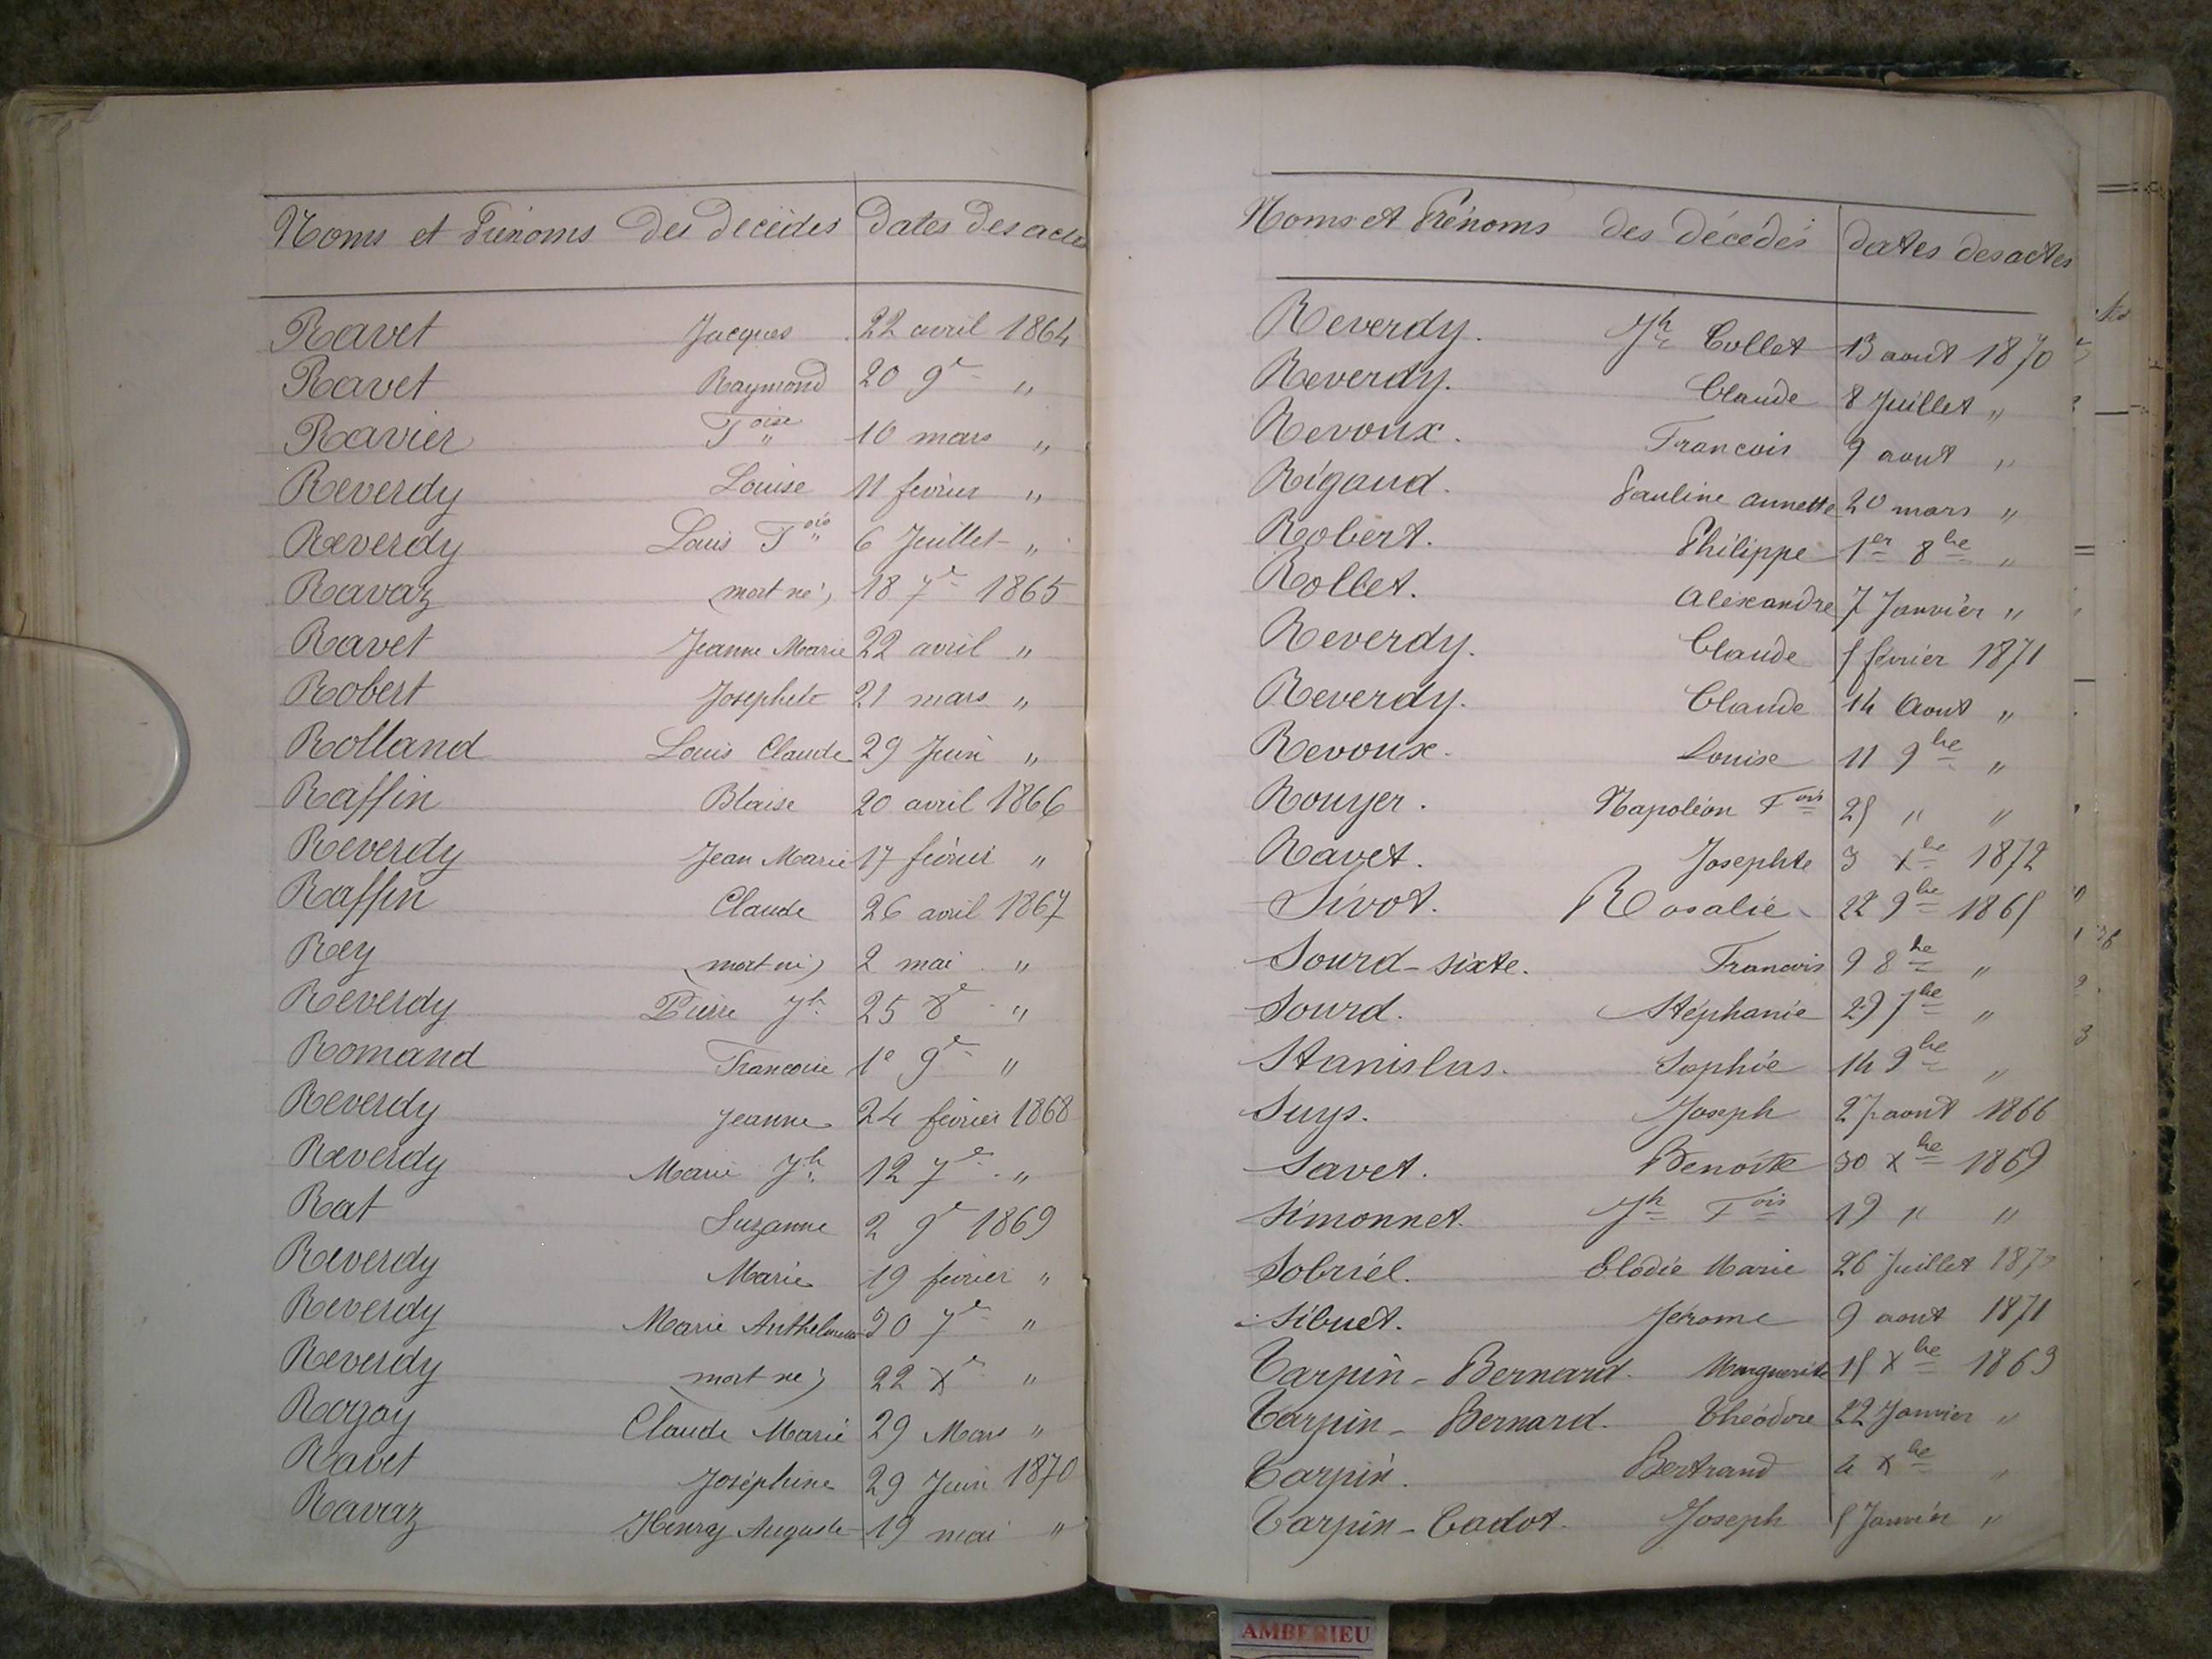 Noms et Prénoms des décédés Dates des actes
Ravet Jacques 22 avril 1864
Ravet Raymond 20 9e "
Ravier Foise 10 mars "
Reverdy Louise 11 février "
Reverdy Louis Fois 6 Juillet "
Ravaz (mort né) 18 7e 1865
Ravet Jeanne Marie 22 avril "
Robert Josephete 21 mars "
Rolland Louis Claude 29 Juin "
Raffin Blaise 20 avril 1866
Reverdy Jean Marie 17 février "
Raffin Claude 26 avril 1867
Rey (mort né) 2 mai "
Reverdy Pierre Jh 25 8e "
Romand Francoise 1e 9e "
Reverdy Jeanne 24 février 1868
Reverdy Marie Jh 12 7e "
Rat Suzanne 2 9e 1869
Reverdy Marie 19 février "
Reverdy Marie Anthelmette 20 7e "
Reverdy mort né) 22 Xe "
Rogay Claude Marie 29 Mars "
Ravet Joséphine 29 Juin 1870
Ravaz Henry Auguste 19 mai "
Noms et Prénoms des décédés dates des actes
Reverdy. Jh Collet 13 aout 1870
Reverdy. Claude 8 Juillet "
Revoux. Francois 9 aout "
Rigaud. Pauline annette 20 mars "
Robert. Philippe 1er 8bre "
Rollet. Alexandre 7 Janvier "
Reverdy. Claude 5 février 1871
Reverdy. Claude 14 Aout "
Revoux. Louise 11 9bre "
Rouyer. Napoléon Fois 25 " "
Ravet. Josephte 3 Xbre 1872
Sivot. Rosalie 22 9bre 1865
Sourd-sixte. Francois 9 8bre "
Sourd. Stéphanie 29 7bre "
Stanislas. Sophie 14 9bre "
Suys. Joseph 27 aout 1866
Savet. Benoite 30 Xbre 1869
Simonnet. Jh Fois 19 " "
Sobriél. Elodie Marie 26 Juillet
Sibuet. Jérome 9 aout 1871
Tarpin-Bernard. Marguerite 15 Xbre 1863
Tarpin-Bernard. Théodore 22 Janvier "
Tarpin. Bertrand 4 Xbre "
Tarpin-Cadot. Joseph 5 Janvier "
AMBERIEU